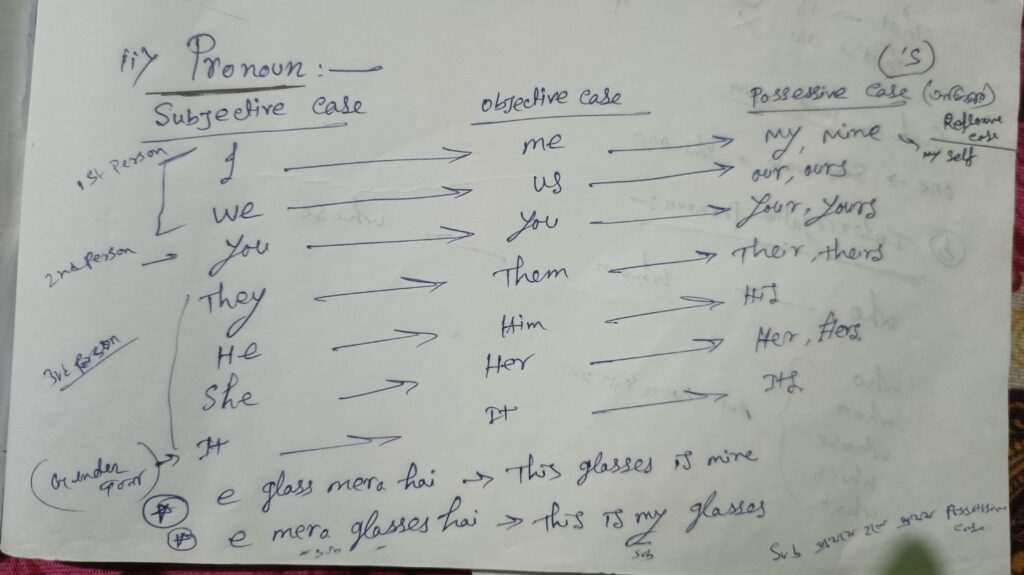 ii) Pronoun :—
('s)
Subjective case objective case Possessive case
Reflexive case
1st person I → me → my, mine → my self
We → us → our, ours
2nd person → You → You → Your, Yours
They → Them → Their, theirs
3rd person He → Him → His
She → Her → Her, Hers
It → It → Its
e glass mera hai → This glasses is mine
e mera glasses hai → this is my glasses
sub
Sub Possessive case